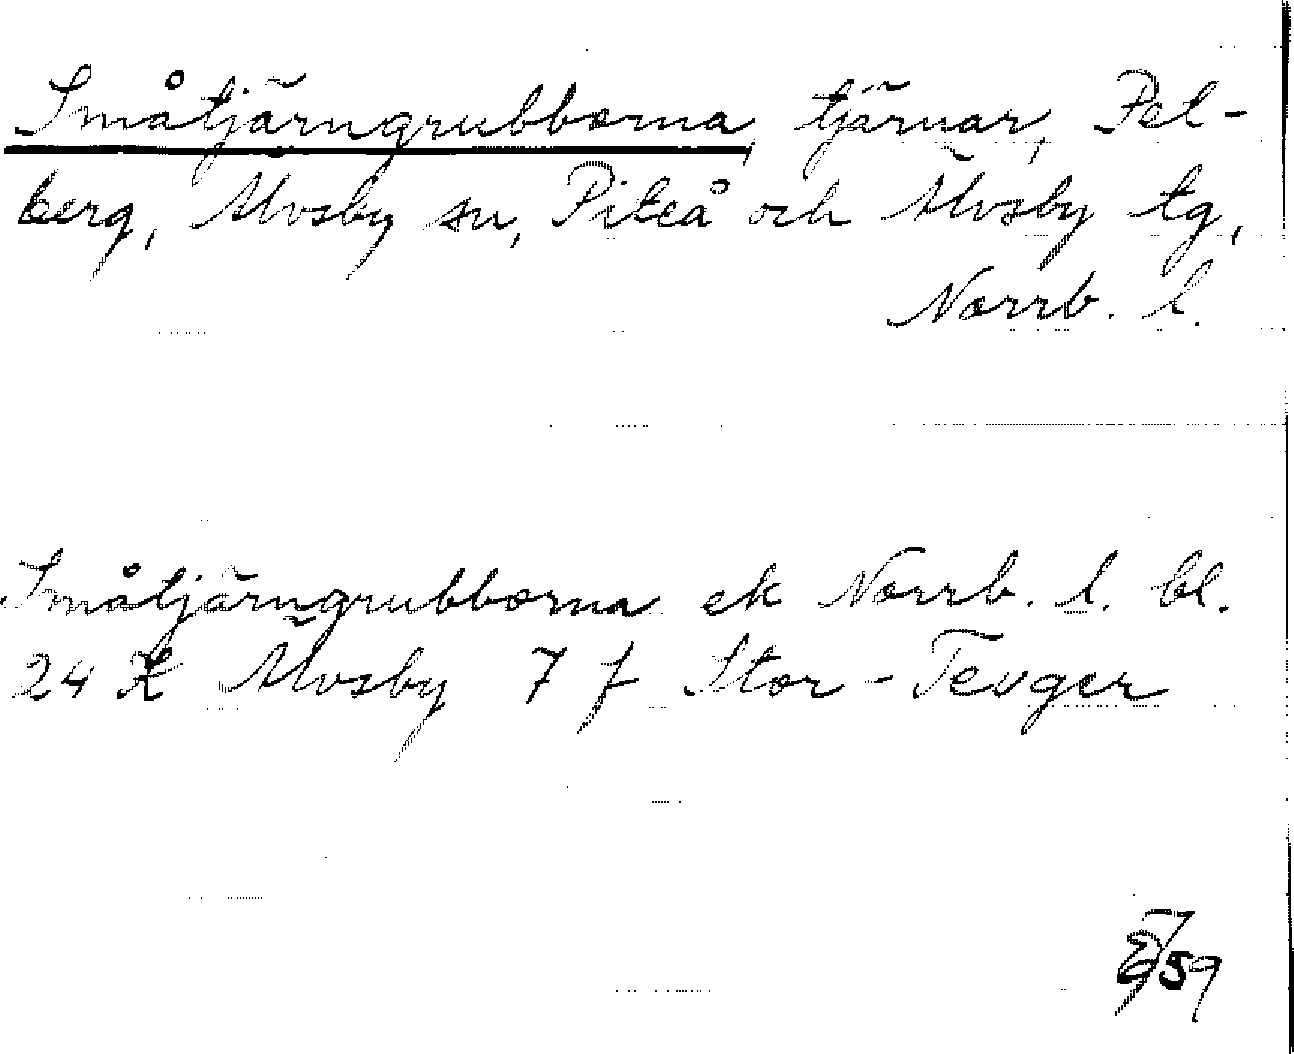 Småtjärngrubborna, tjärnar, Pel-
berg, Älvsby sn, Piteå och Älvsby tg,
Norrb. l.
Småtjärngrubborna ek Norrb. l. bl.
24 K Älvsby 7 f Stor-Tevger
59